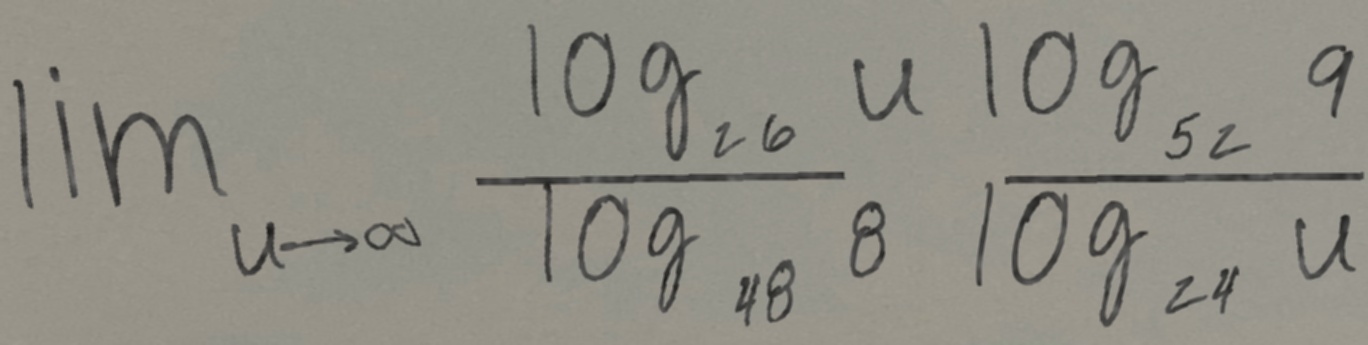 \lim_{u \to \infty} \frac{\log_{26} u}{\log_{48} 8} \frac{\log_{52} 9}{\log_{24} u}